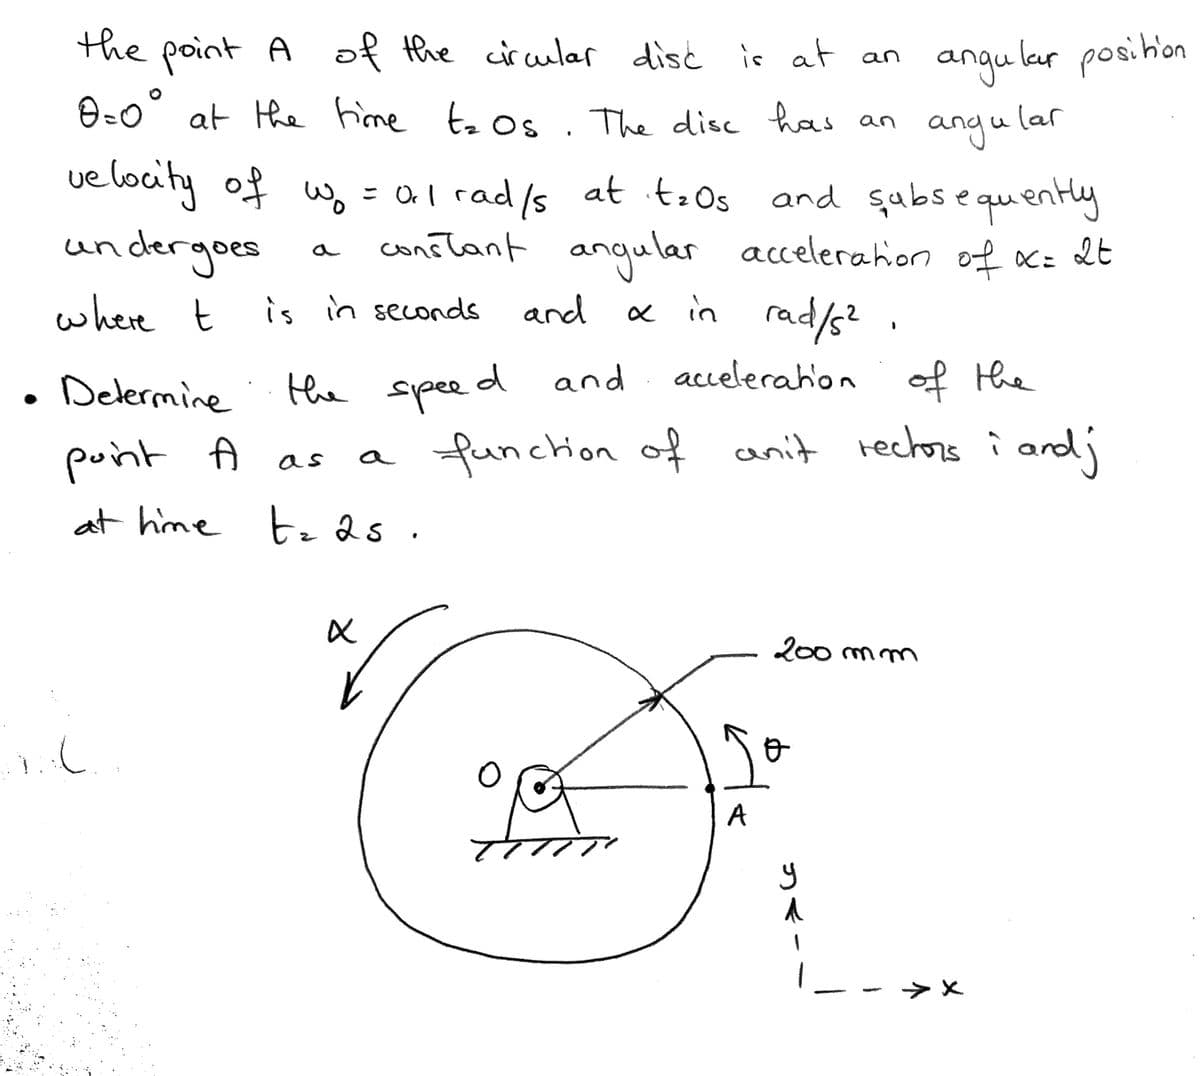 the point A of the circular disc is at an angular position
θ=0° at the time t=0s. The disc has an angular
velocity of ω₀ = 0.1 rad/s at t=0s and subsequently
undergoes a constant angular acceleration of α= 2t
where t is in seconds and α in rad/s²,
• Determine the speed and acceleration of the
point A as a function of unit vectors i and j
at time t= 2s.
α
200 mm
θ
O
A
y
x